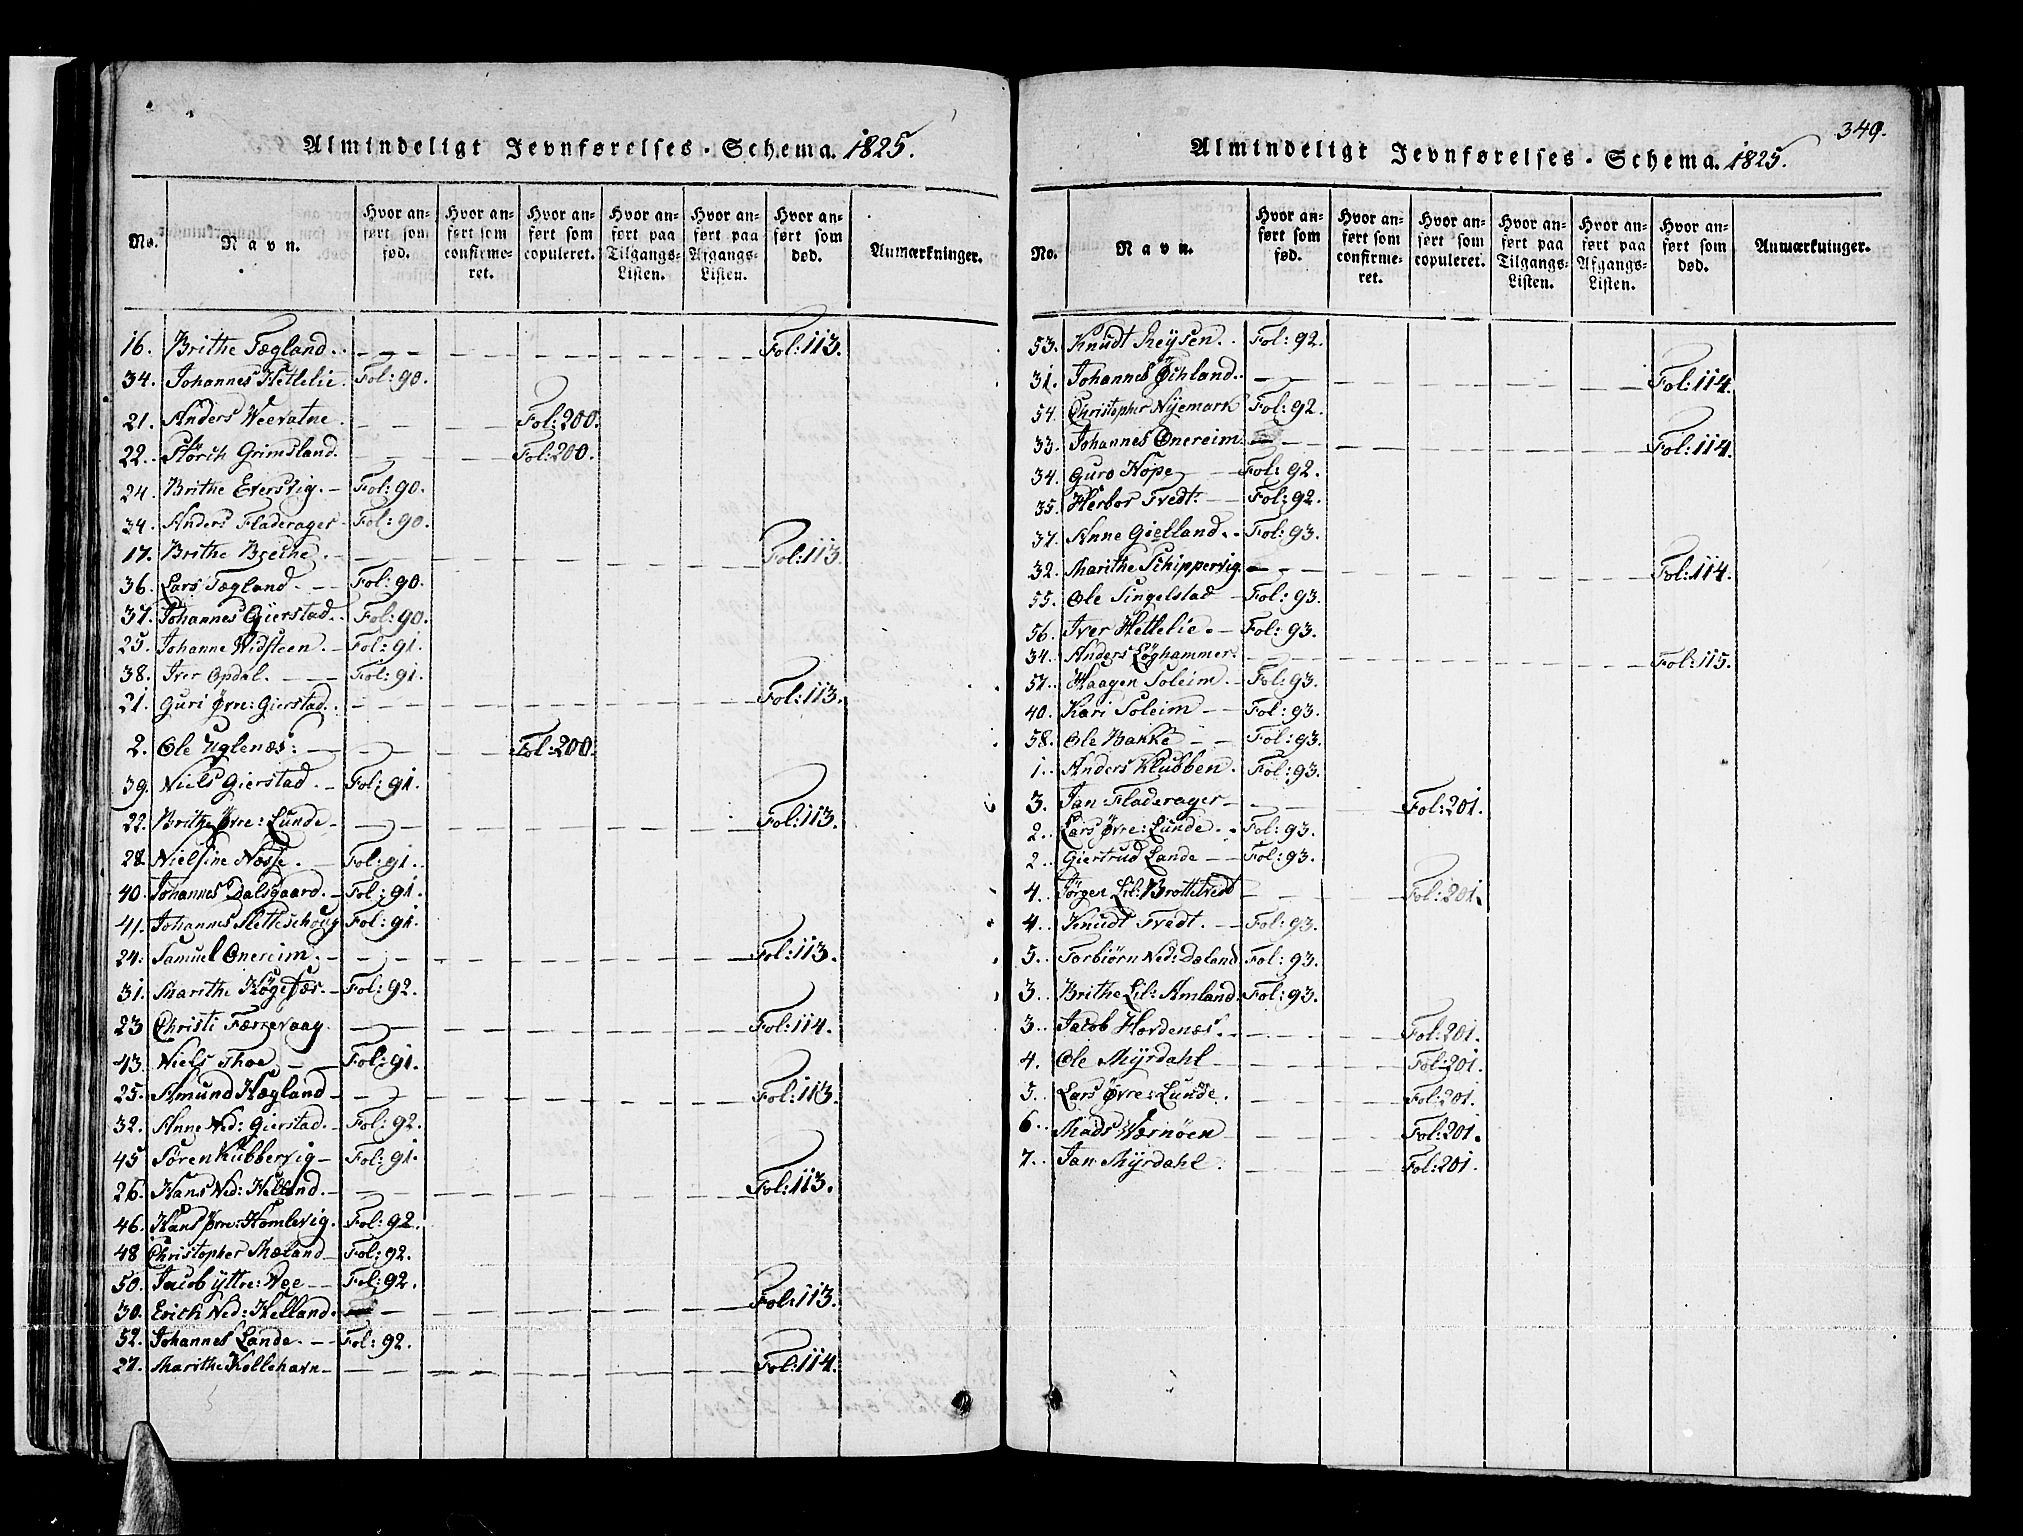 Almindeligt Jevnførelses-Schema. 1825.
No.
Navn.
Hvor anført som fød.
Hvor anført som confirmeret.
Hvor anført som copuleret.
Hvor anført paa Tilgangs-Listen.
Hvor anført paa Afgangs-Listen.
Hvor anført som død.
Anmærkninger.
16. Brithe Tægland. Fol: 113.
34. Johannes Hettelie. Fol: 90.
21. Anders Weevatne. Fol: 200.
22. Störik Grimsland. Fol: 200.
24. Brithe Eversvig. Fol: 90.
34. Anders Fladerager Fol: 90.
17. Brithe Fol: 113
36. Lars Tægland. Fol: 90.
37. Johannes Gierstad. Fol: 90.
25. Johanne Widsteen. Fol: 91.
38. Iver Opdal. Fol: 91.
21. Guri Øvre: Gierstad. Fol: 113.
2. Ole Uglenæs: Fol: 200.
39. Niels Gierstad. Fol: 91.
22. Brithe Øvre: Lunde Fol: 113.
28. Nielsine Næsse. Fol: 91.
40. Johannes Dalsgaard. Fol: 91.
41. Johannes Sletteschoug Fol: 91.
24. Samuel Onereim. Fol: 113.
31. Marithe Høgefæs. Fol: 92.
23 Christi Færrevaag. Fol: 114.
43. Niels Thoe Fol: 91.
25. Amund Hægland Fol: 113.
32. Anne Ned: Gierstad. Fol: 92.
45 Søren Kubbervig Fol: 91.
26. Hans Ned: Helland. Fol: 113.
46. Hans Øvre: Homlevig. Fol: 92.
48 Christopher Mæland Fol: 92.
50. Jacob Yttre: Vee Fol: 92.
30. Erich Ned: Helland. Fol: 113.
52. Johannes Lande. Fol: 92.
27. Marithe Kollehavn Fol: 114.
349.
Almindeligt Jevnførelses-Schema. 1825.
No.
Navn.
Hvor anført som fød.
Hvor anført som confirmeret.
Hvor anført som copuleret.
Hvor anført paa Tilgangs-Listen.
Hvor anført paa Afgangs-Listen.
Hvor anført som død.
Anmærkninger.
53. Knudt Reysen. Fol: 92.
31. Johannes Øchland. Fol: 114.
54. Christopher Nyemark Fol: 92.
33. Johannes Onereim. Fol: 114.
34. Guro Hope Fol: 92.
35. Herbor Tvedt. Fol: 92.
37. Anne Gielland. Fol: 93.
32. Marithe Schippervig. Fol: 114.
55. Ole Singelstad Fol: 93.
56. Iver Hettelie. Fol: 93.
34. Anders Løghammer. Fol: 115.
57. Haagen Soleim. Fol: 93.
40. Kari Soleim Fol: 93.
58. Ole Bakke Fol: 93.
1. Anders Klubben. Fol: 93.
3. Jan Fladerager Fol: 201.
2. Lars Øvre: Lunde. Fol: 93.
2. Giertrud Lande Fol: 93.
4. Jørgen Lil: Brottetvedt Fol: 201.
4. Knudt Tvedt. Fol: 93.
5. Torbiørn Ned: Daland. Fol: 93.
3. Brithe Lil: Amland. Fol: 93.
3. Jacob Hordenæs. Fol: 201.
4. Ole Myrdahl Fol: 201.
5. Lars Øvre: Lunde. Fol: 201.
6. Mads Wernøen Fol: 201.
7. Jan Myrdahl. Fol: 201.